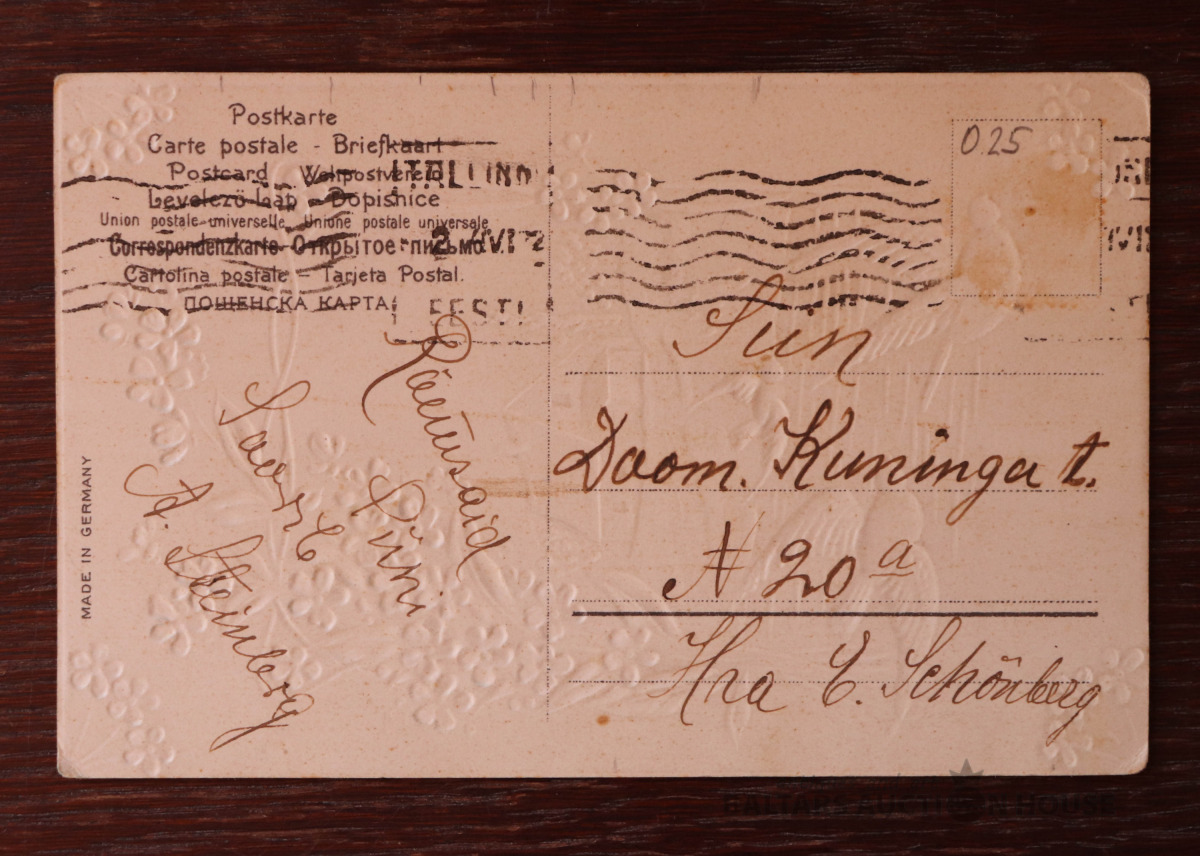 Postkarte
Carte postale - Briefkaart
Postcard Weltpostverein
Levelező-Lap - Dopisnice
Union postale universelle Unione postale universale
Correspondenzkarte Открытое письмо
Cartolina postale - Tarjeta Postal.
ПОШЕНСКА КАРТА
TALLINN
EESTI
MADE IN GERMANY
Rõemsaid
Pühi
Soovib
A. Steinberg
025
Siin
Doom. Kuninga t.
N 20 a
Hra E. Schönberg
BALTARS AUCTION HOUSE